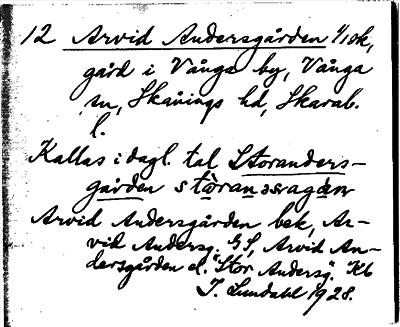 12 Arvid Andersgården 1/1 ok,
gård i Vånga by, Vånga
sn, Skånings hd, Skarab.
l.
Kallas i dagl. tal Storanders-
gården
Arvid Andersgården bek, Ar-
vid Andersg. GS, Arvid An-
dersgården el. "Stor Andersg". Kb
I. Lundahl 1928.